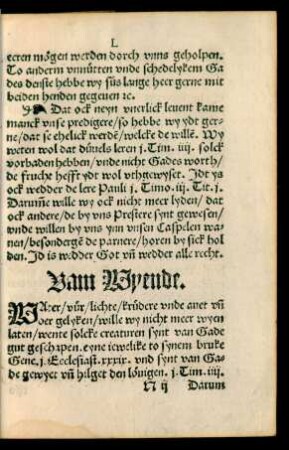 L
eeren mögen werden dorch vnns geholpen.
To anderm vnnütten vnde schedelykem Ga
des denste hebbe wy süs lange heer gerne mit
beiden henden gegeuen ꝛc.
Dat ock neyn vnerlick leuent kame
manck vnse predigere/ so hebbe wy ydt ger-
ne/ dat se ehelick werdē/ welcke de willē. Wy
weten wol dat düuels leren j. Tim. iiij. solck
vorbaden hebben/ vnde nicht Gades worth/
de frucht hefft ydt wol vthgewyset. Idt ys
ock wedder de lere Pauli j. Timo. iij. Tit. j.
Darumme wille wy ock nicht meer lyden/ dat
ock andere/ de by vns Prestere synt gewesen/
vnde willen by vns ynn vnsen Caspelen wa-
nen/ besondergē de parnere/ horen by sick hol
den. Id is wedder Got vn̄ wedder alle recht.
Vam Wyende.
WAter/ vür/ lichte/ krüdere vnde auet vn̄
der gelyken/ wille wy nicht meer wyen
laten/ wente solcke creaturen synt van Gade
gut geschapen. eyne iewelike to synem bruke
Gene. j. Ecclesiast. xxxix. vnd synt van Ga-
de gewyet vn̄ hilget den löuigen. j. Tim. iiij.
N ij Darum